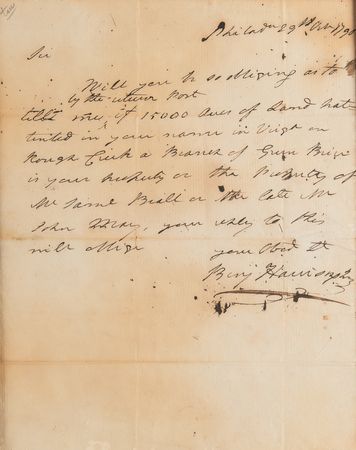 Philada 29th Octr 179
Sir
Will you be so obliging as to
by the return Post
tell me if 15000 Acres of Land pat-
tented in your name in Virga on
Rough Creek a Branch of Green River
is your property or the Property of
Mr Saml Beall or the late Mr
John May, your reply to this
will oblige
your Obed St
Benj Harrison Jr